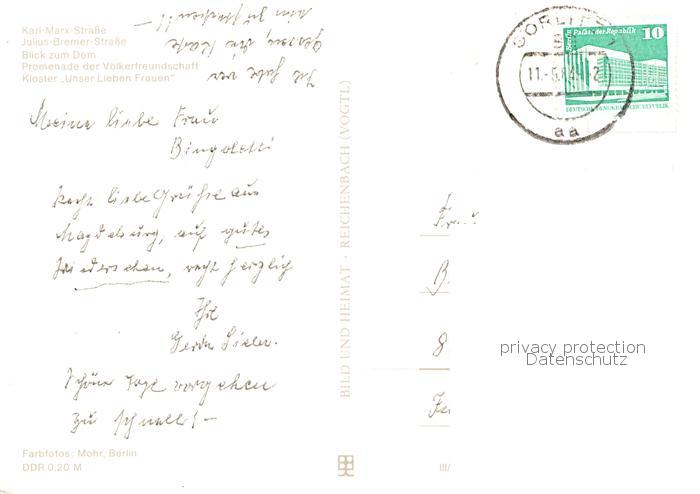 Karl-Marx-Straße
Julius-Bremer-Straße
Blick zum Dom
Promenade der Völkerfreundschaft
Kloster „Unser Lieben Frauen"
Ich habe vor
die Karte
Meine liebe Frau
Bingoletti
Recht liebe Grüße aus
Magdeburg, auf gutes
Wiedersehen, recht herzlich
Ihre
Gerda
Schöne Tage vergehen
zu schnell! –
Farbfotos: Mohr, Berlin
DDR 0,20 M
BILD UND HEIMAT · REICHENBACH (VOGTL)
III/
GÖRLITZ
11.-5.
aa
Berlin Palast der Republik
10
DEUTSCHE DEMOKRATISCHE REPUBLIK
B
8
privacy protection
Datenschutz